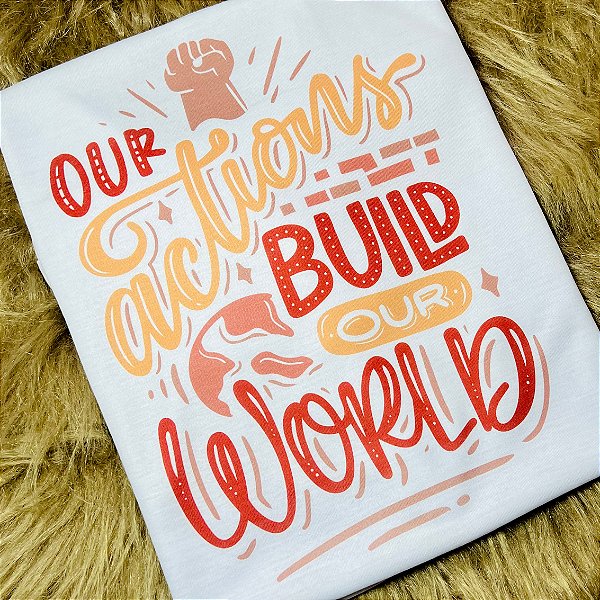 OUR
actions
BUILD
OUR
WORLD